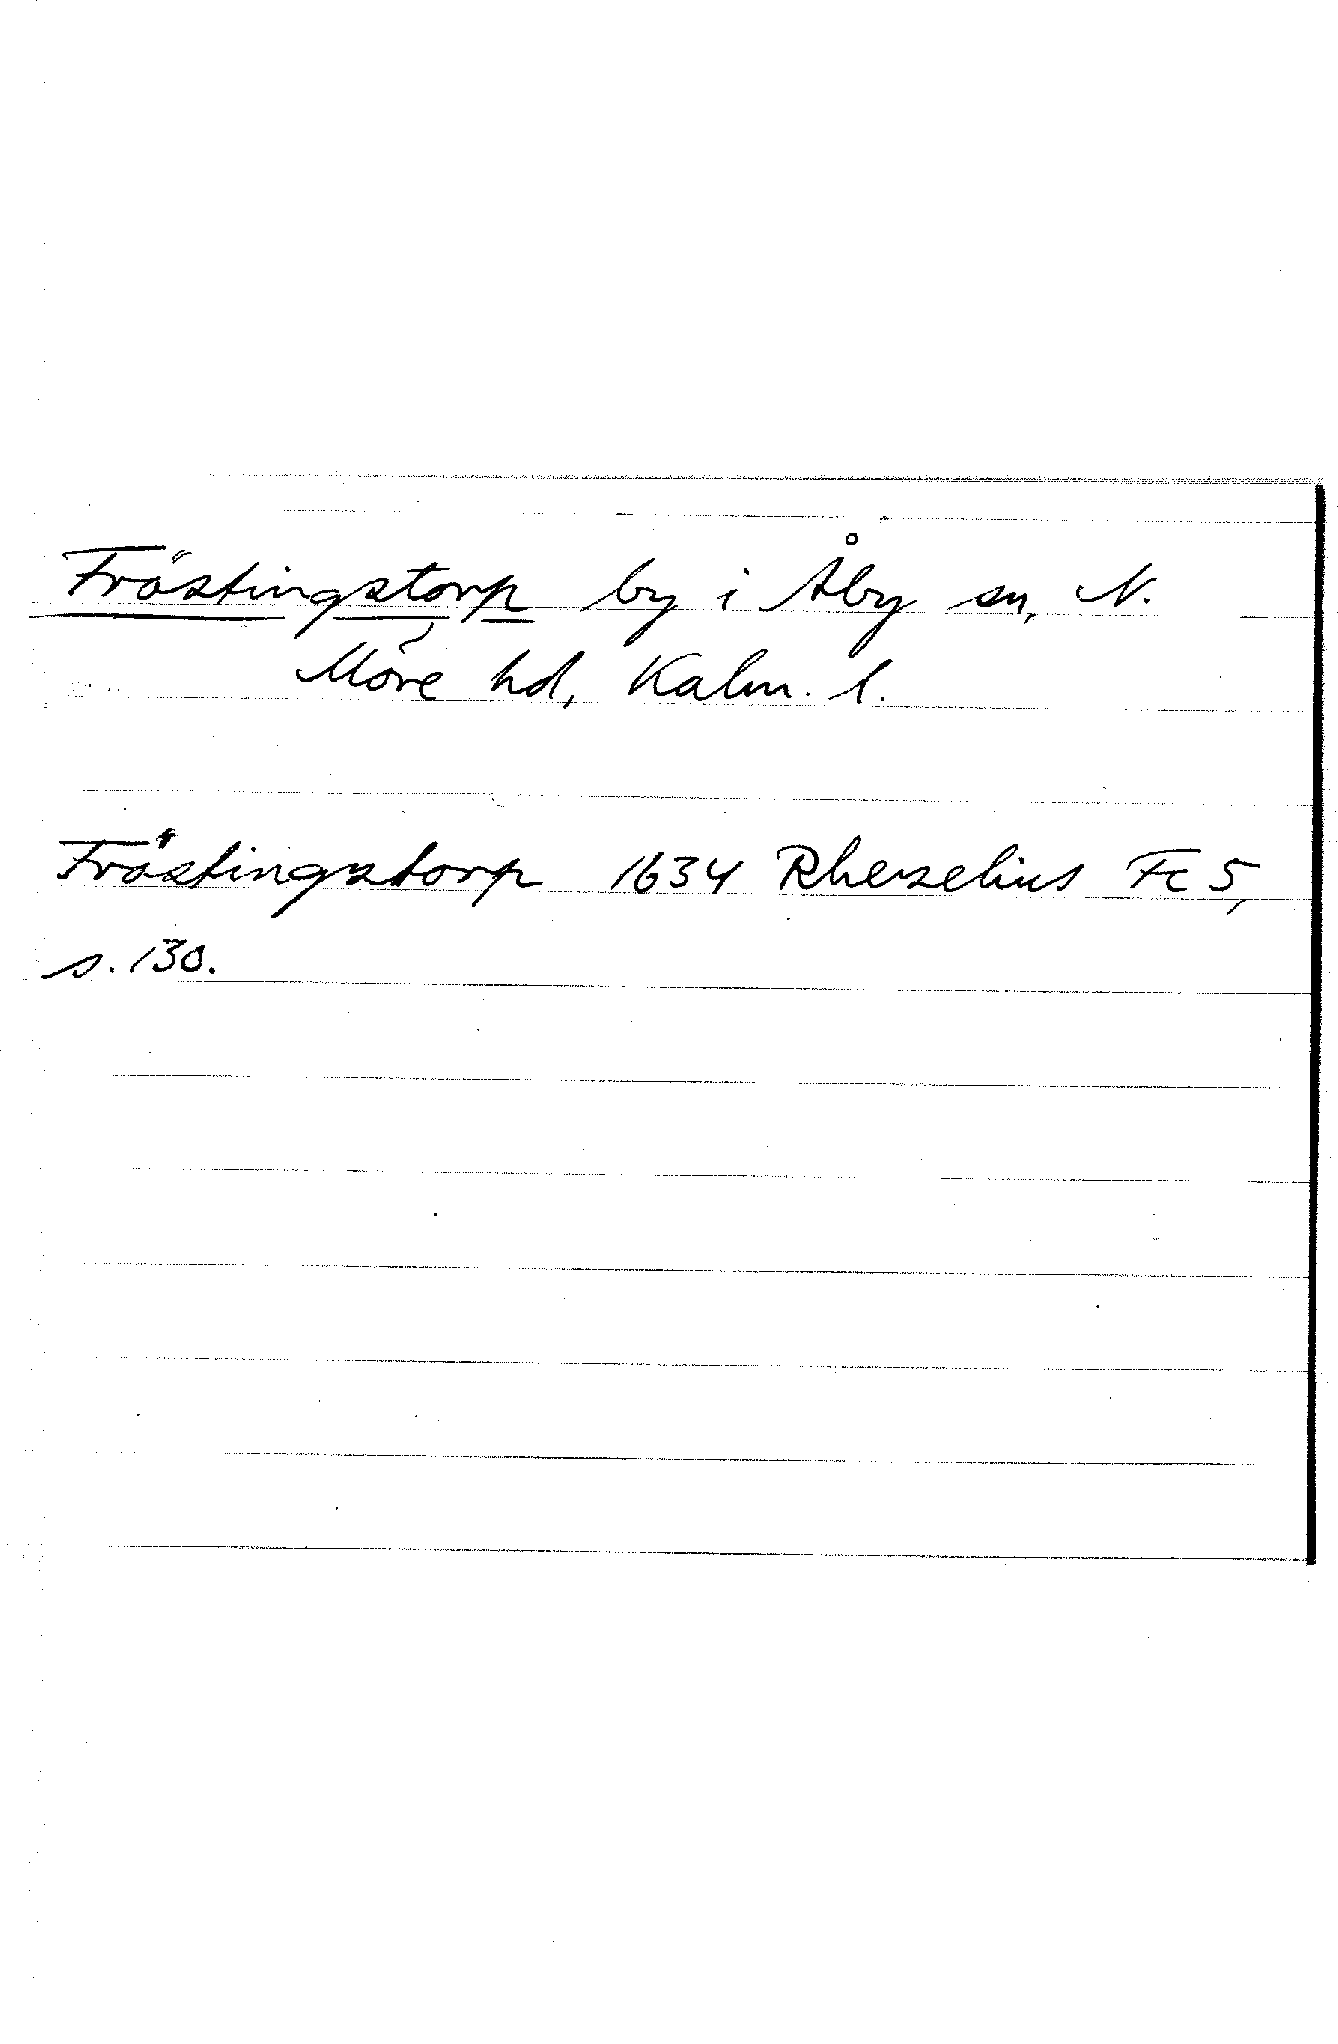 Fröstingstorp by i Åby sn, N.
Möre hd, Kalm. l.
Fröstingstorp 1634 Rhezelius Fc 5,
s. 130.